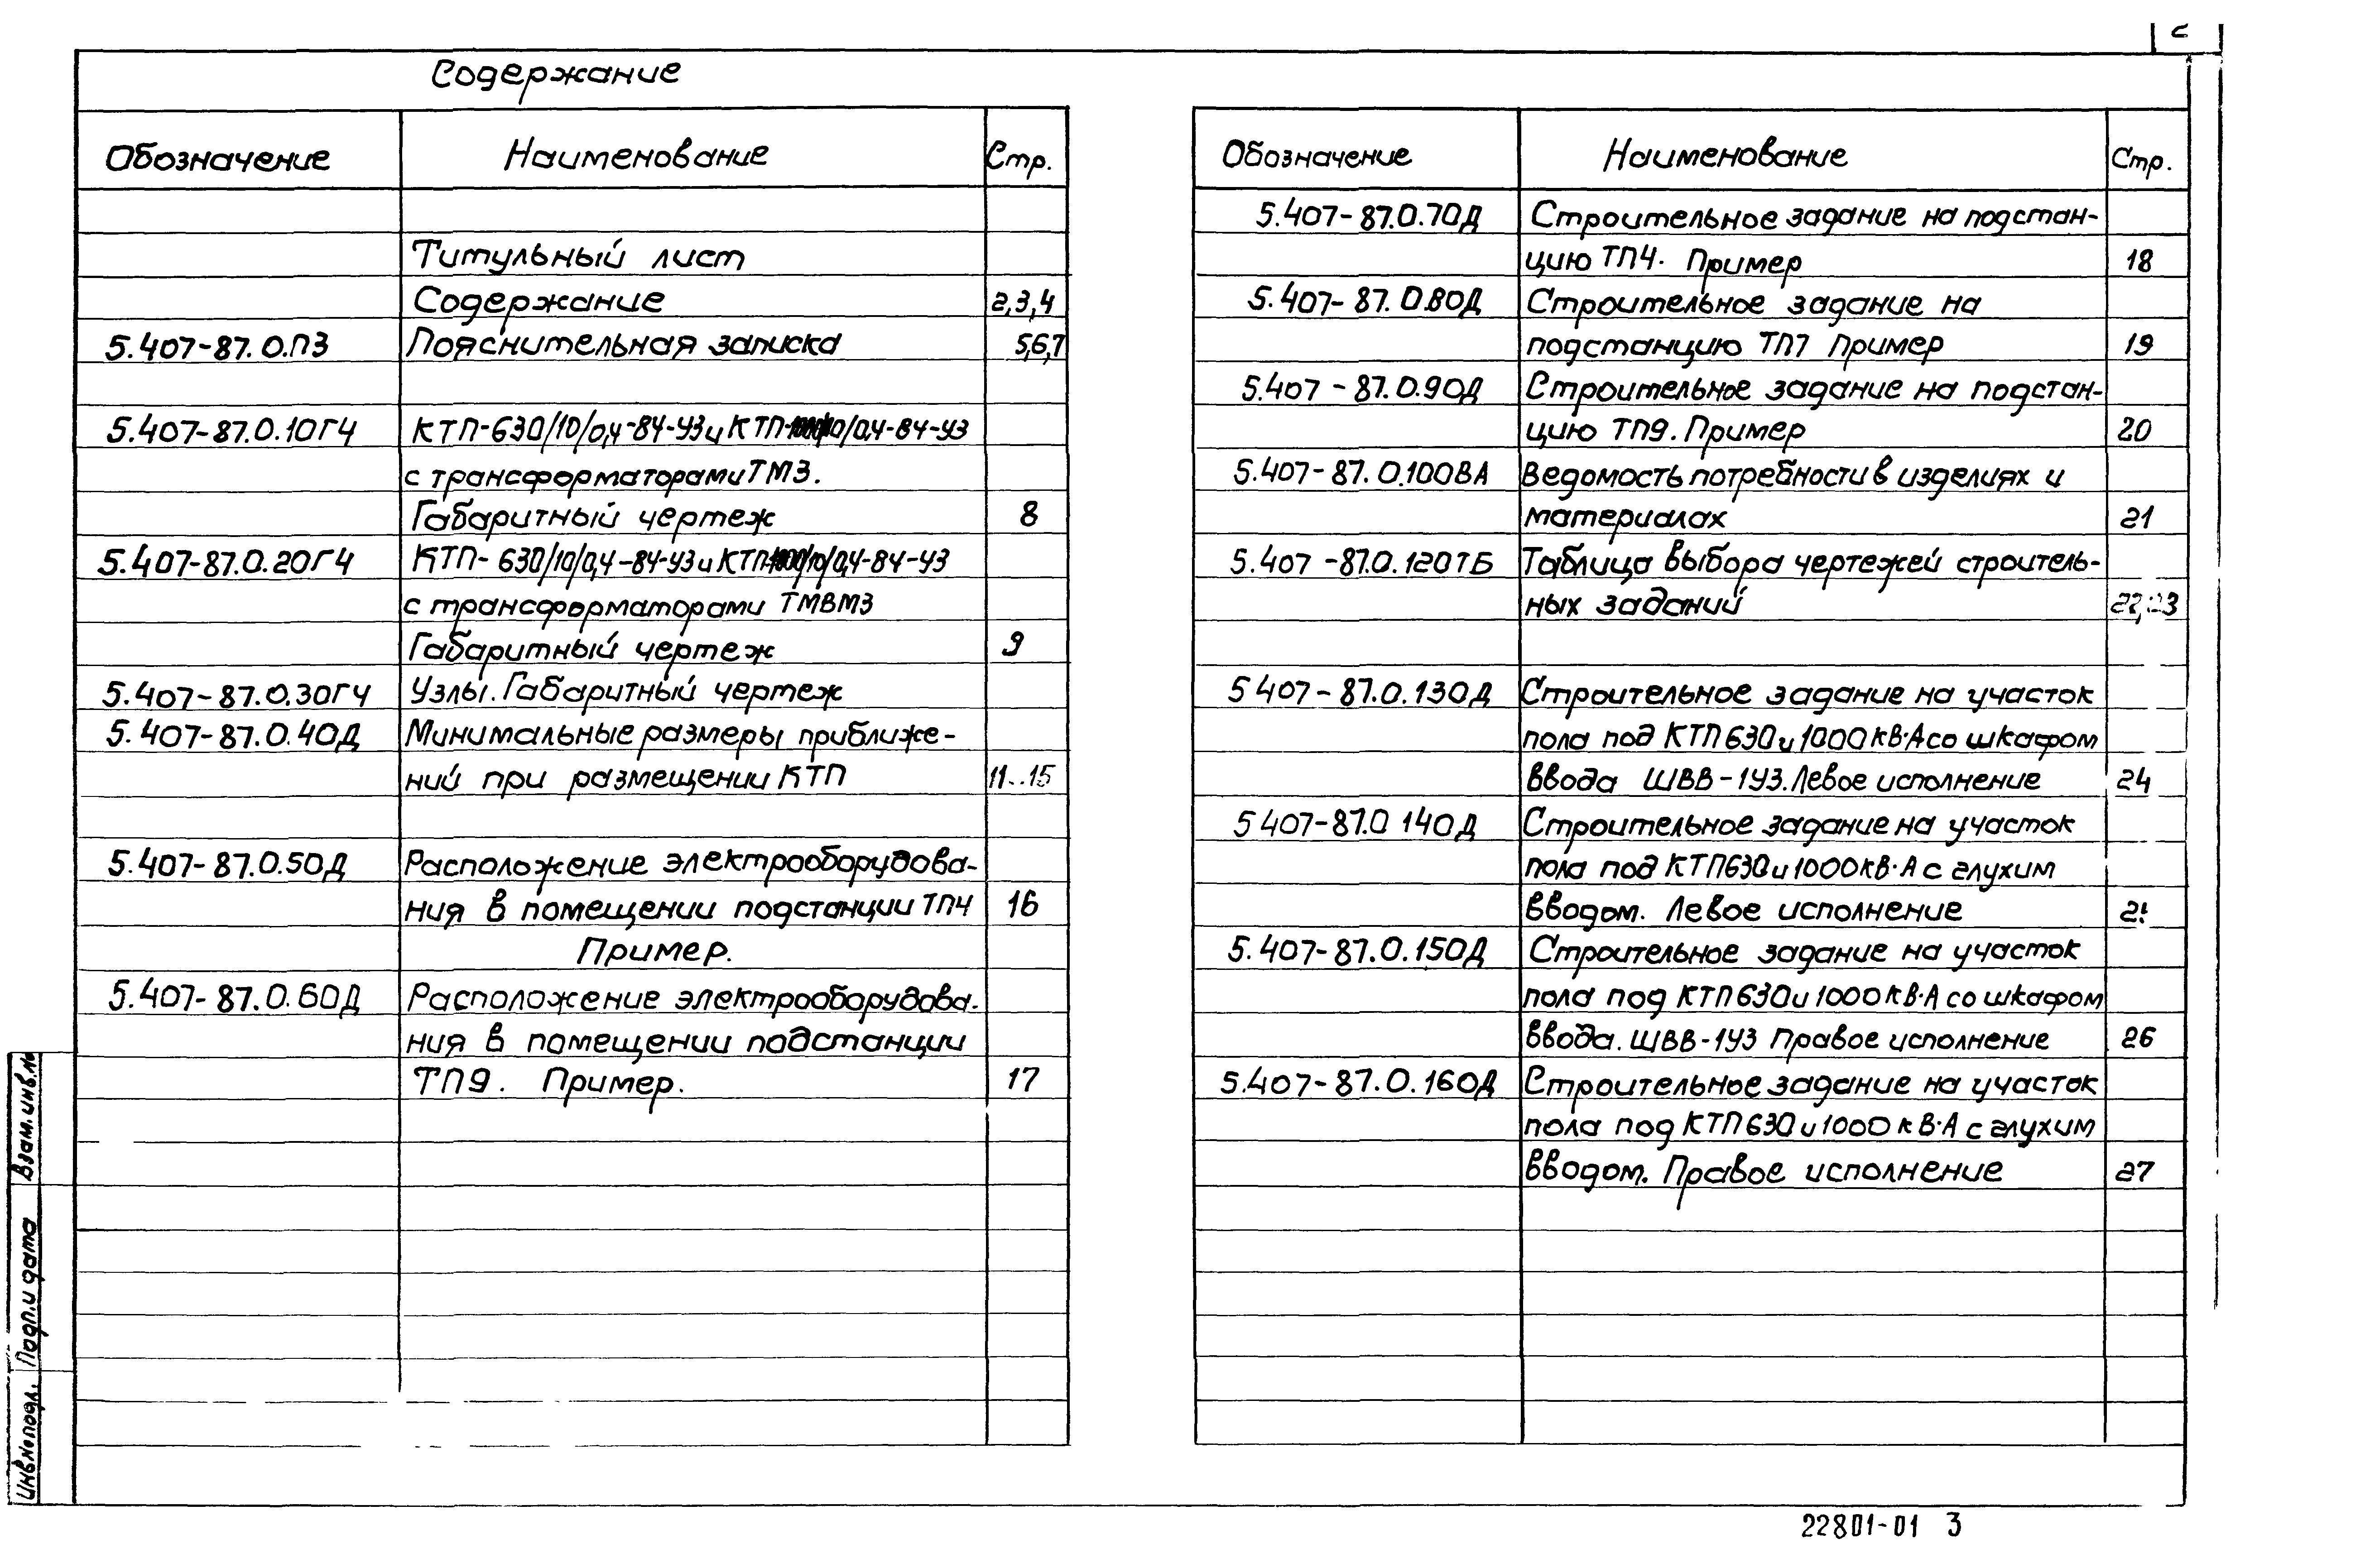 2
Содержание
Обозначение Наименование Стр.
Титульный лист
Содержание 2,3,4
5.407-87.0.ПЗ Пояснительная записка 5,6,7
5.407-87.0.10ГЧ КТП-630/10/0,4-84-У3 и КТП-1000/10/0,4-84-У3
с трансформаторами ТМЗ.
Габаритный чертеж 8
5.407-87.0.20ГЧ КТП-630/10/0,4-84-У3 и КТП-1000/10/0,4-84-У3
с трансформаторами ТМВМЗ
Габаритный чертеж 9
5.407-87.0.30ГЧ Узлы. Габаритный чертеж
5.407-87.0.40Д Минимальные размеры приближе-
ний при размещении КТП 11..15
5.407-87.0.50Д Расположение электрооборудова-
ния в помещении подстанции ТП4 16
Пример.
5.407-87.0.60Д Расположение электрооборудова-
ния в помещении подстанции
ТП9. Пример. 17
Обозначение Наименование Стр.
5.407-87.0.70Д Строительное задание на подстан-
цию ТП4. Пример 18
5.407-87.0.80Д Строительное задание на
подстанцию ТП7 Пример 19
5.407-87.0.90Д Строительное задание на подстан-
цию ТП9. Пример 20
5.407-87.0.100ВА Ведомость потребности в изделиях и
материалах 21
5.407-87.0.120ТБ Таблица выбора чертежей строитель-
ных заданий 22,23
5 407-87.0.130Д Строительное задание на участок
пола под КТП 630 и 1000 кВ·А со шкафом
ввода ШВВ-1У3. Левое исполнение 24
5 407-87.0 140Д Строительное задание на участок
пола под КТП 630 и 1000 кВ·А с глухим
вводом. Левое исполнение
5.407-87.0.150Д Строительное задание на участок
пола под КТП 630 и 1000 кВ·А со шкафом
ввода. ШВВ-1У3 Правое исполнение 26
5.407-87.0.160Д Строительное задание на участок
пола под КТП 630 и 1000 кВ·А с глухим
вводом. Правое исполнение 27
Взам. инв. №
Подп. и дата
Инв. № подл.
22801-01 3